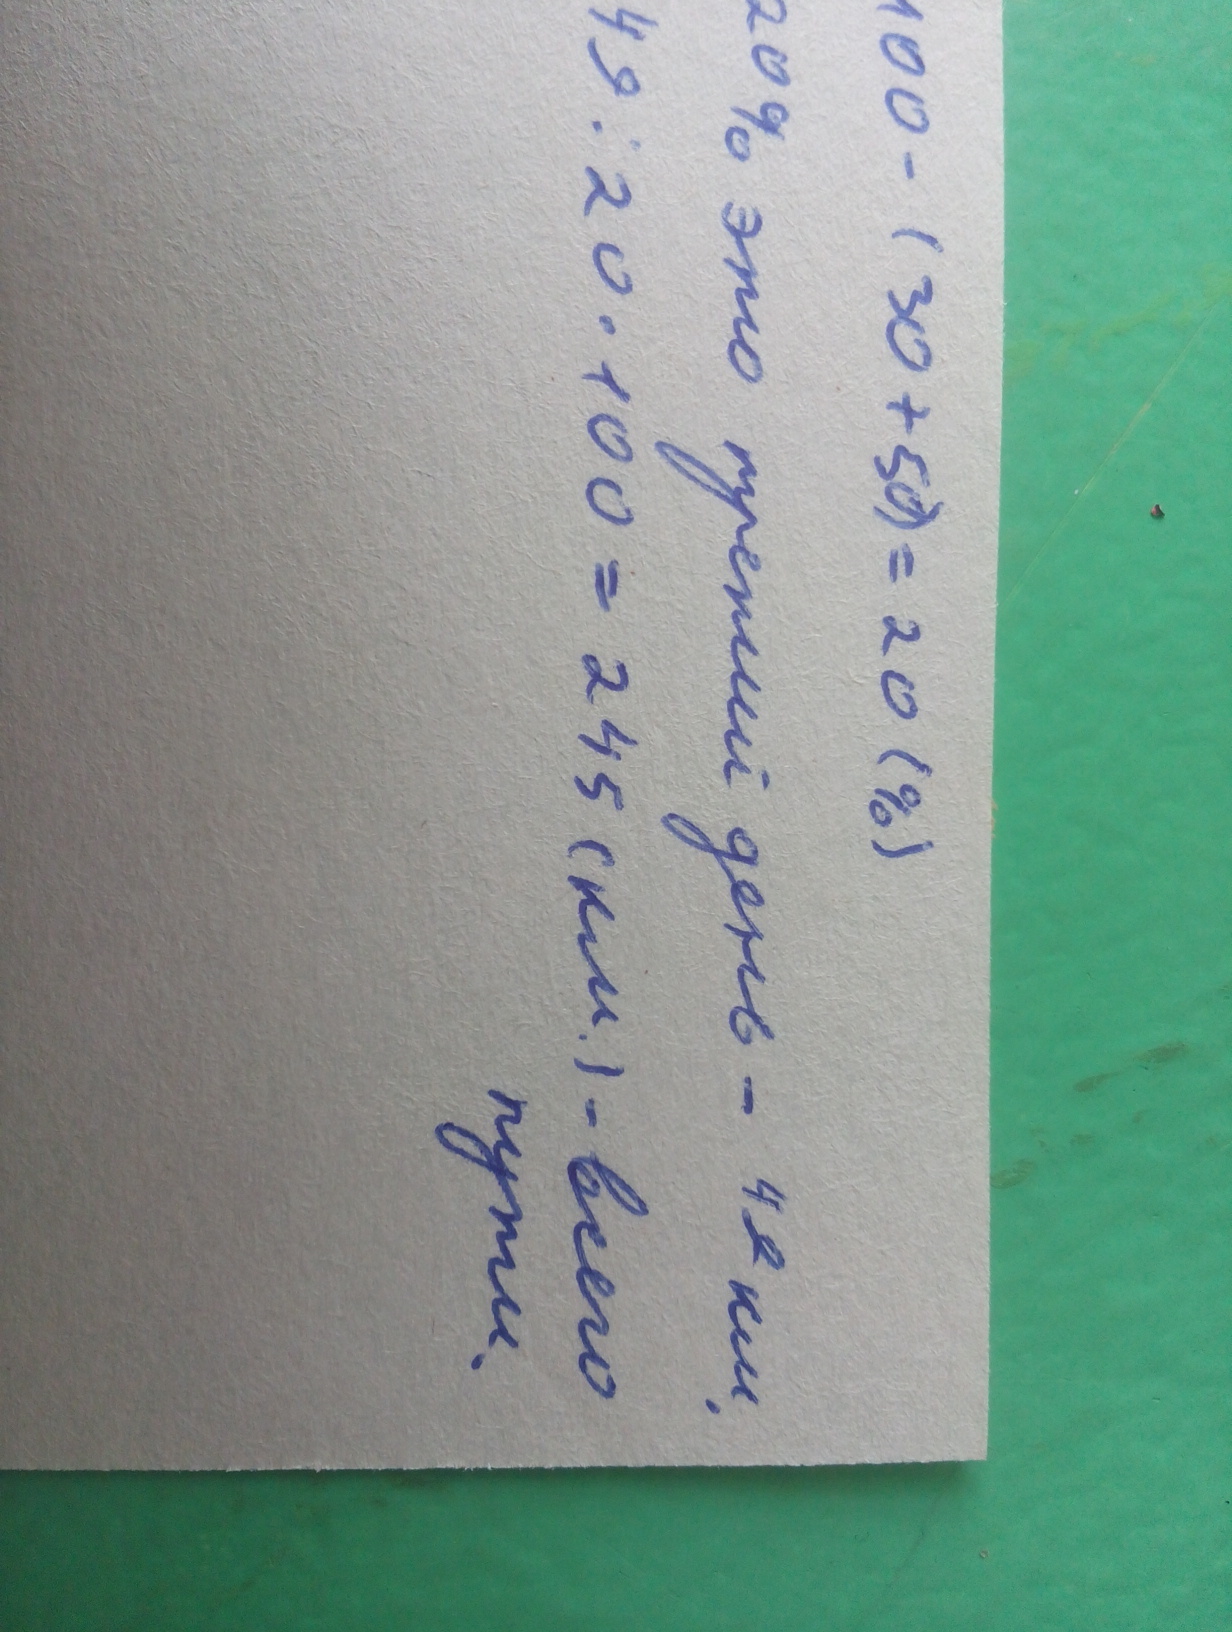 100 - (30 + 50) = 20 (%)
20% это третий день - 49 км.
49 : 20 · 100 = 245 (км.) - всего
пути.